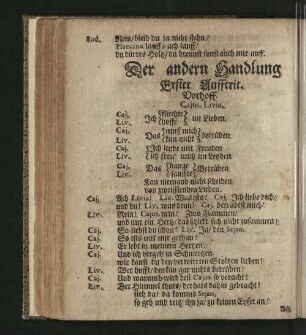 Lud. Nein/ bleib du ja nicht stehn/
Plancina lauff/ ach lauff/
du dürres Holtz/ du brennst sonst auch mit auff.
Der andern Handlung
Erster Aufftrit.
Vorhoff.
Cajus. Livia.
Caj. Ich fürchte im Lieben.
Liv. hoffe
Caj. Das muß mich betrüben.
Liv. kan nicht
Caj. Ich leyde mit Freuden
Liv. Ich freu' mich im Leyden
Caj. Das bange Betrüben
Liv. sanffte
Kan niemand nicht scheiden
von zweiffelnden Lieben.
Caj. Ach Livia! Liv. Was ists? Caj. Ich liebe dich/
und du? Liv. was denn? Caj. den aber mich?
Liv. Nein; Cajus, nein; Zwey Flammen/
und nur ein Hertz/ das schickt sich nicht zusammen;
Caj. So liebst du schon? Liv. Ja/ den Sejan.
Caj. So ists mit mir gethan!
Liv. Er lebt in meinem Hertzen;
Caj. Und ich vergeh' in Schmertzen.
wie kanst du den verwirrten Stoltzen lieben?
Liv. Wer hofft/ den kan gar nichts betrüben!
Caj. Und warumb wird den Cajus so veracht?
Liv. Der Himmel thuts/ der hats dahin gebracht!
sieh da! da kommt Sejan,
so geh und tritt/ ihn ja/ zu keinen Eyfer an/